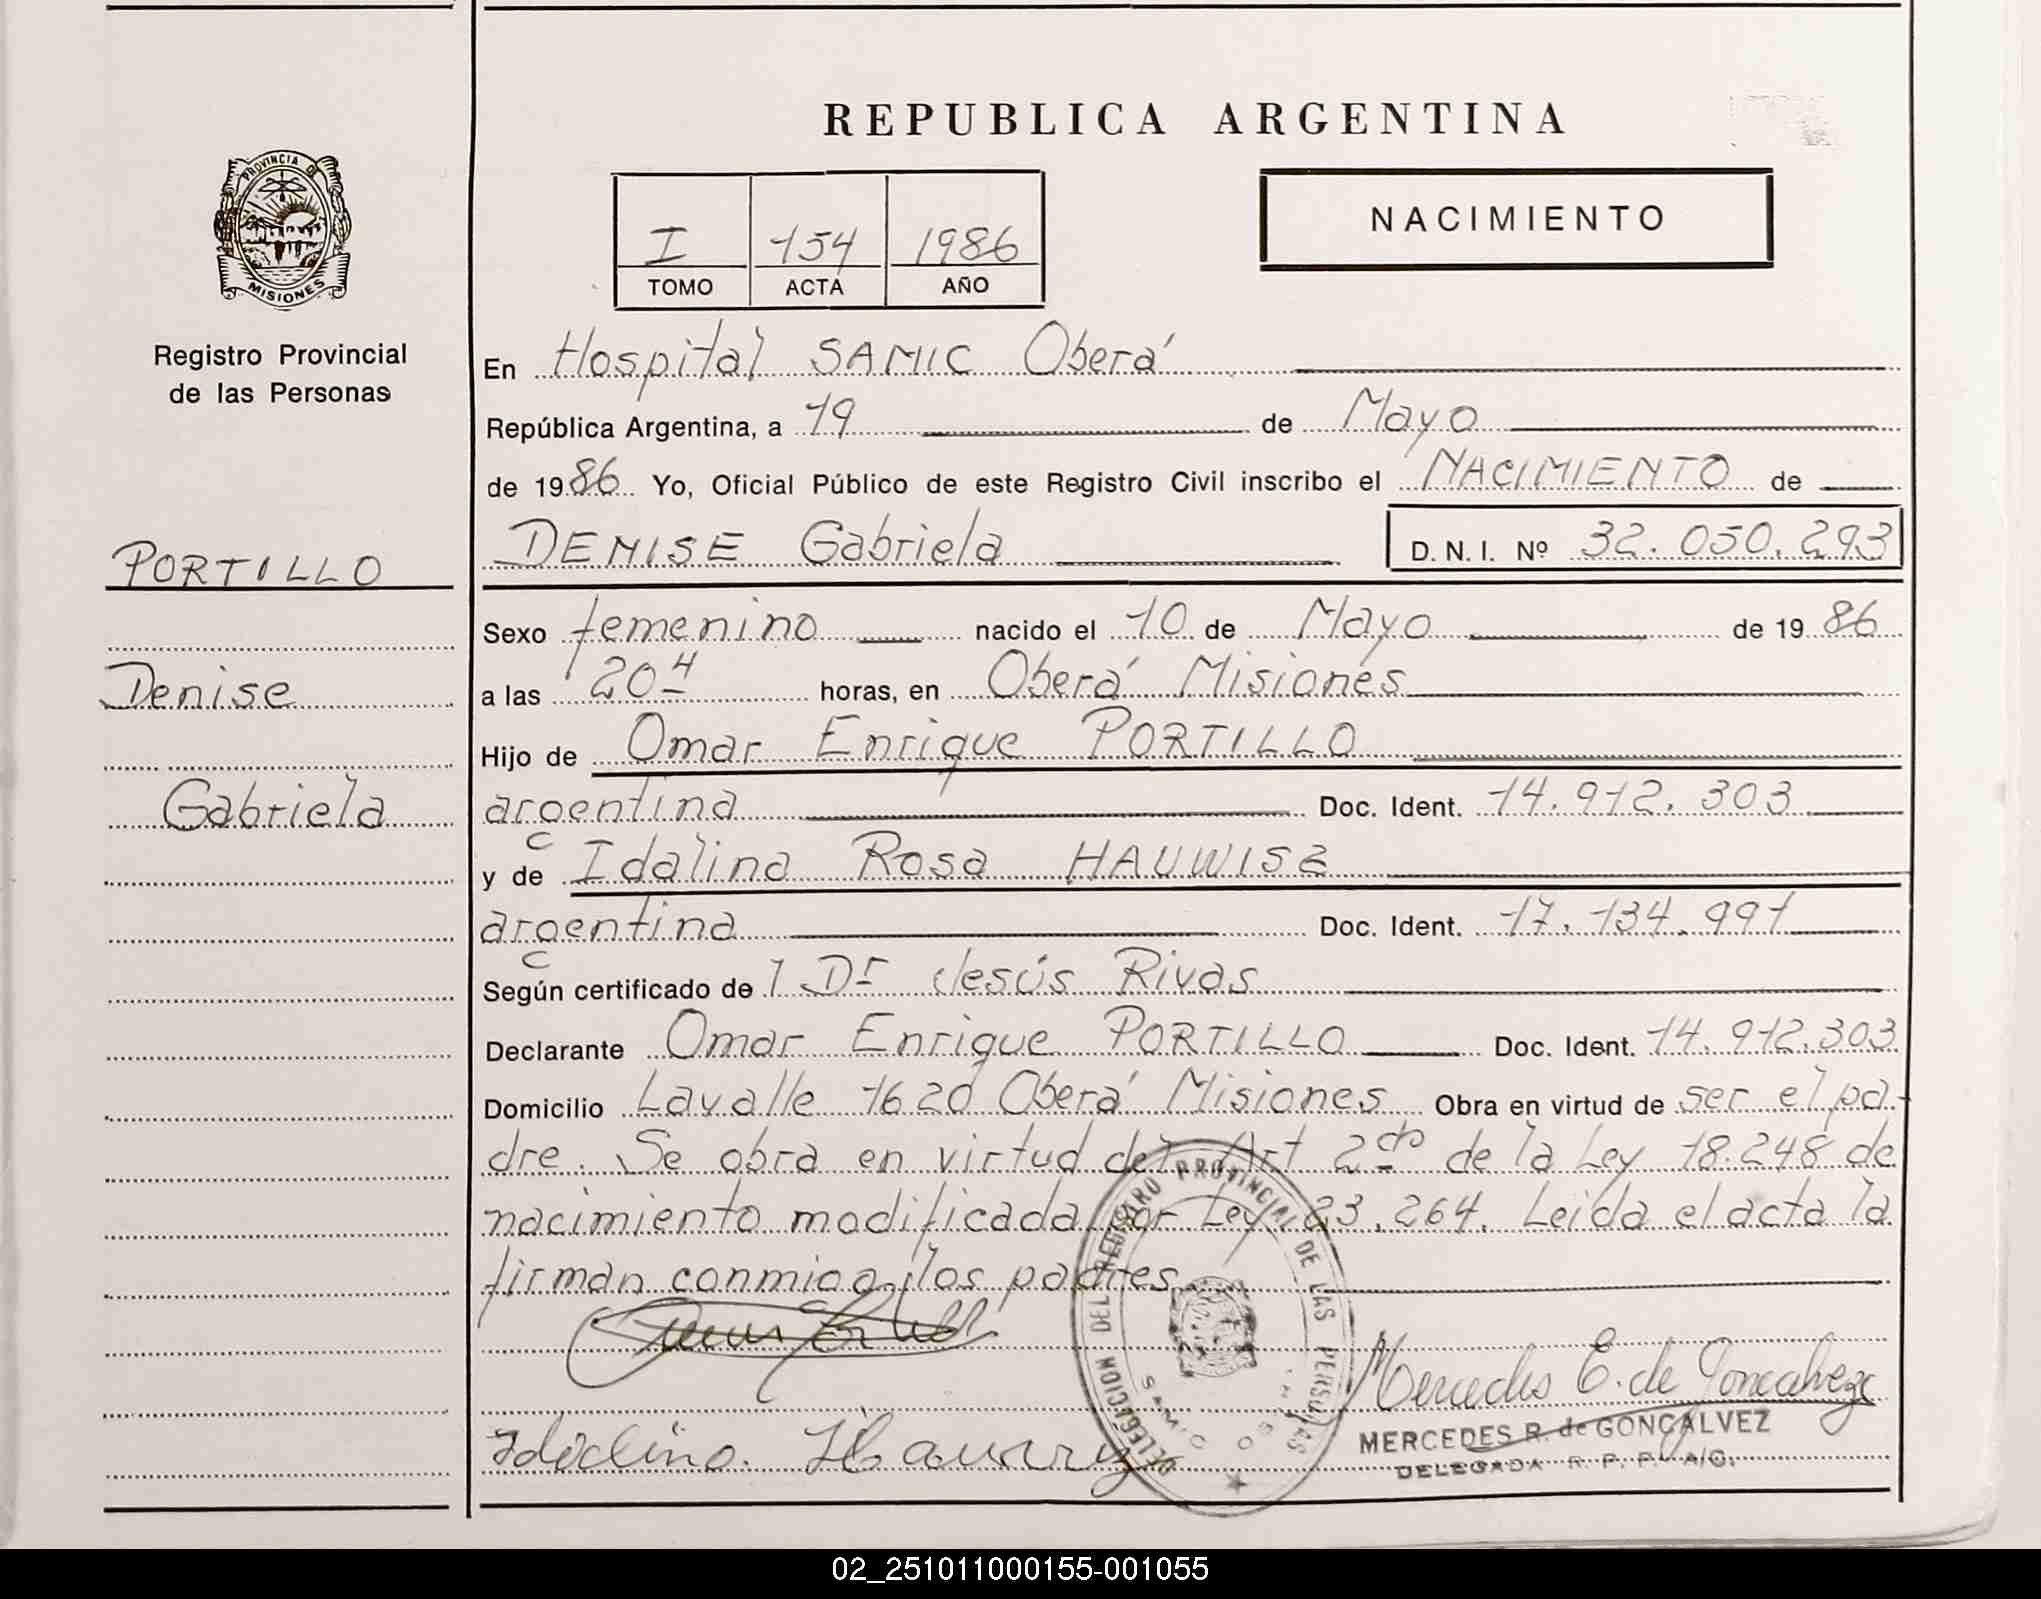 REPUBLICA ARGENTINA
PROVINCIA DE
MISIONES
I 154 1986
TOMO ACTA AÑO
NACIMIENTO
Registro Provincial
de las Personas
PORTILLO
Denise
Gabriela
En Hospital SAMIC Oberá
República Argentina, a 19 de Mayo
de 1986 Yo, Oficial Público de este Registro Civil inscribo el NACIMIENTO de
DENISE Gabriela D. N. I. Nº 32.050.293
Sexo femenino nacido el 10 de Mayo de 1986
a las 20 4 horas, en Oberá Misiones
Hijo de Omar Enrique PORTILLO
argentina Doc. Ident. 14.912.303
y de Idalina Rosa
argentina Doc. Ident. 17.134.991
Según certificado de l Dr Jesús Rivas
Declarante Omar Enrique PORTILLO Doc. Ident. 14.912.303
Domicilio Lavalle 1620 Oberá Misiones Obra en virtud de ser el pa-
dre. Se obra en virtud del Art 2do de la Ley 18.248 de
nacimiento modificada por Ley 23.264. Leida el acta la
firman conmigo los padres
DELEGACION DEL REGISTRO PROVINCIAL DE LAS PERSONAS
SAMIC
Mercedes E. de Goncalvez
Idalina
MERCEDES R. de GONÇALVEZ
DELEGADA R. P. P. A/C.
02_251011000155-001055